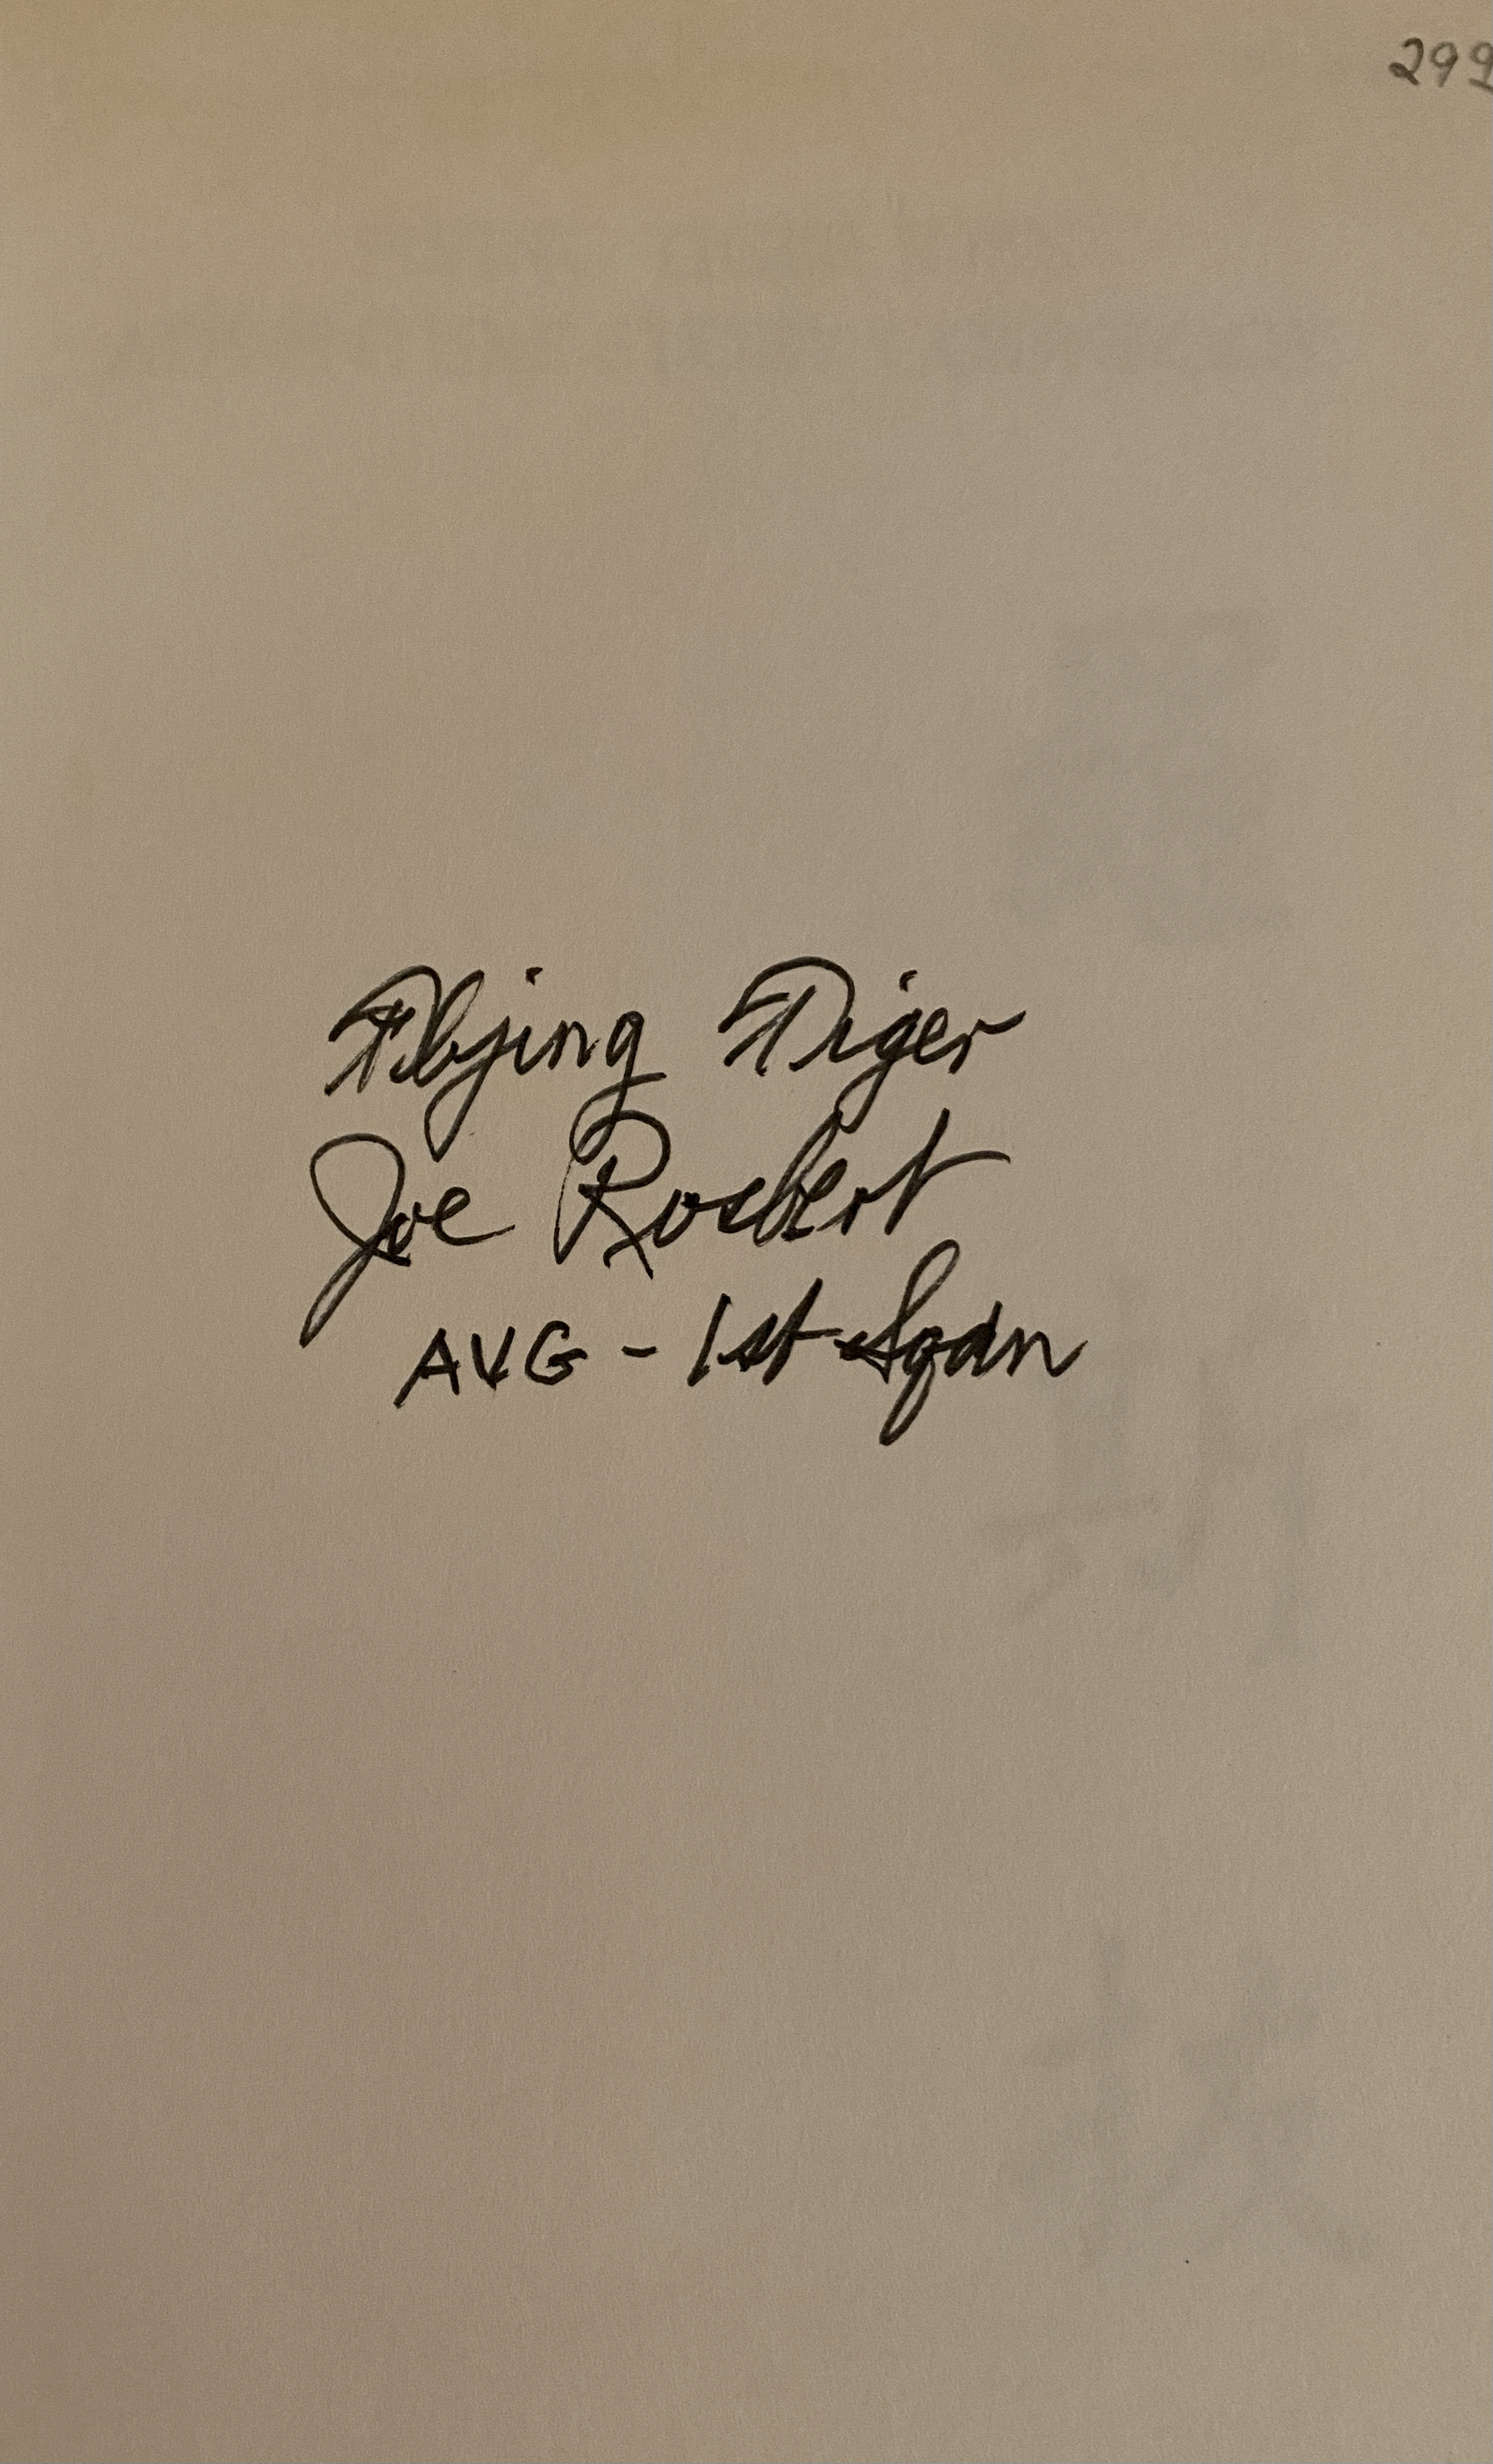 299
Flying Tiger
Joe Rosbert
AVG - 1st Sqdn